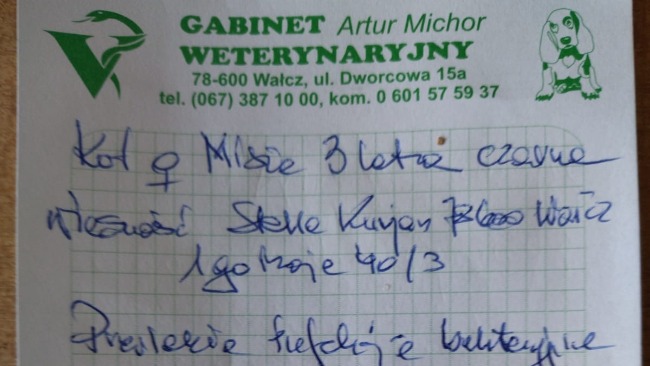 GABINET Artur Michor
WETERYNARYJNY
78-600 Wałcz, ul. Dworcowa 15a
tel. (067) 387 10 00, kom. 0 601 57 59 37
Kot ♀ Misia 3 letnia czarna
własność Stella Kurjan 78-600 Wałcz
1go Maja 40/3
Przewlekła infekcja bakteryjna